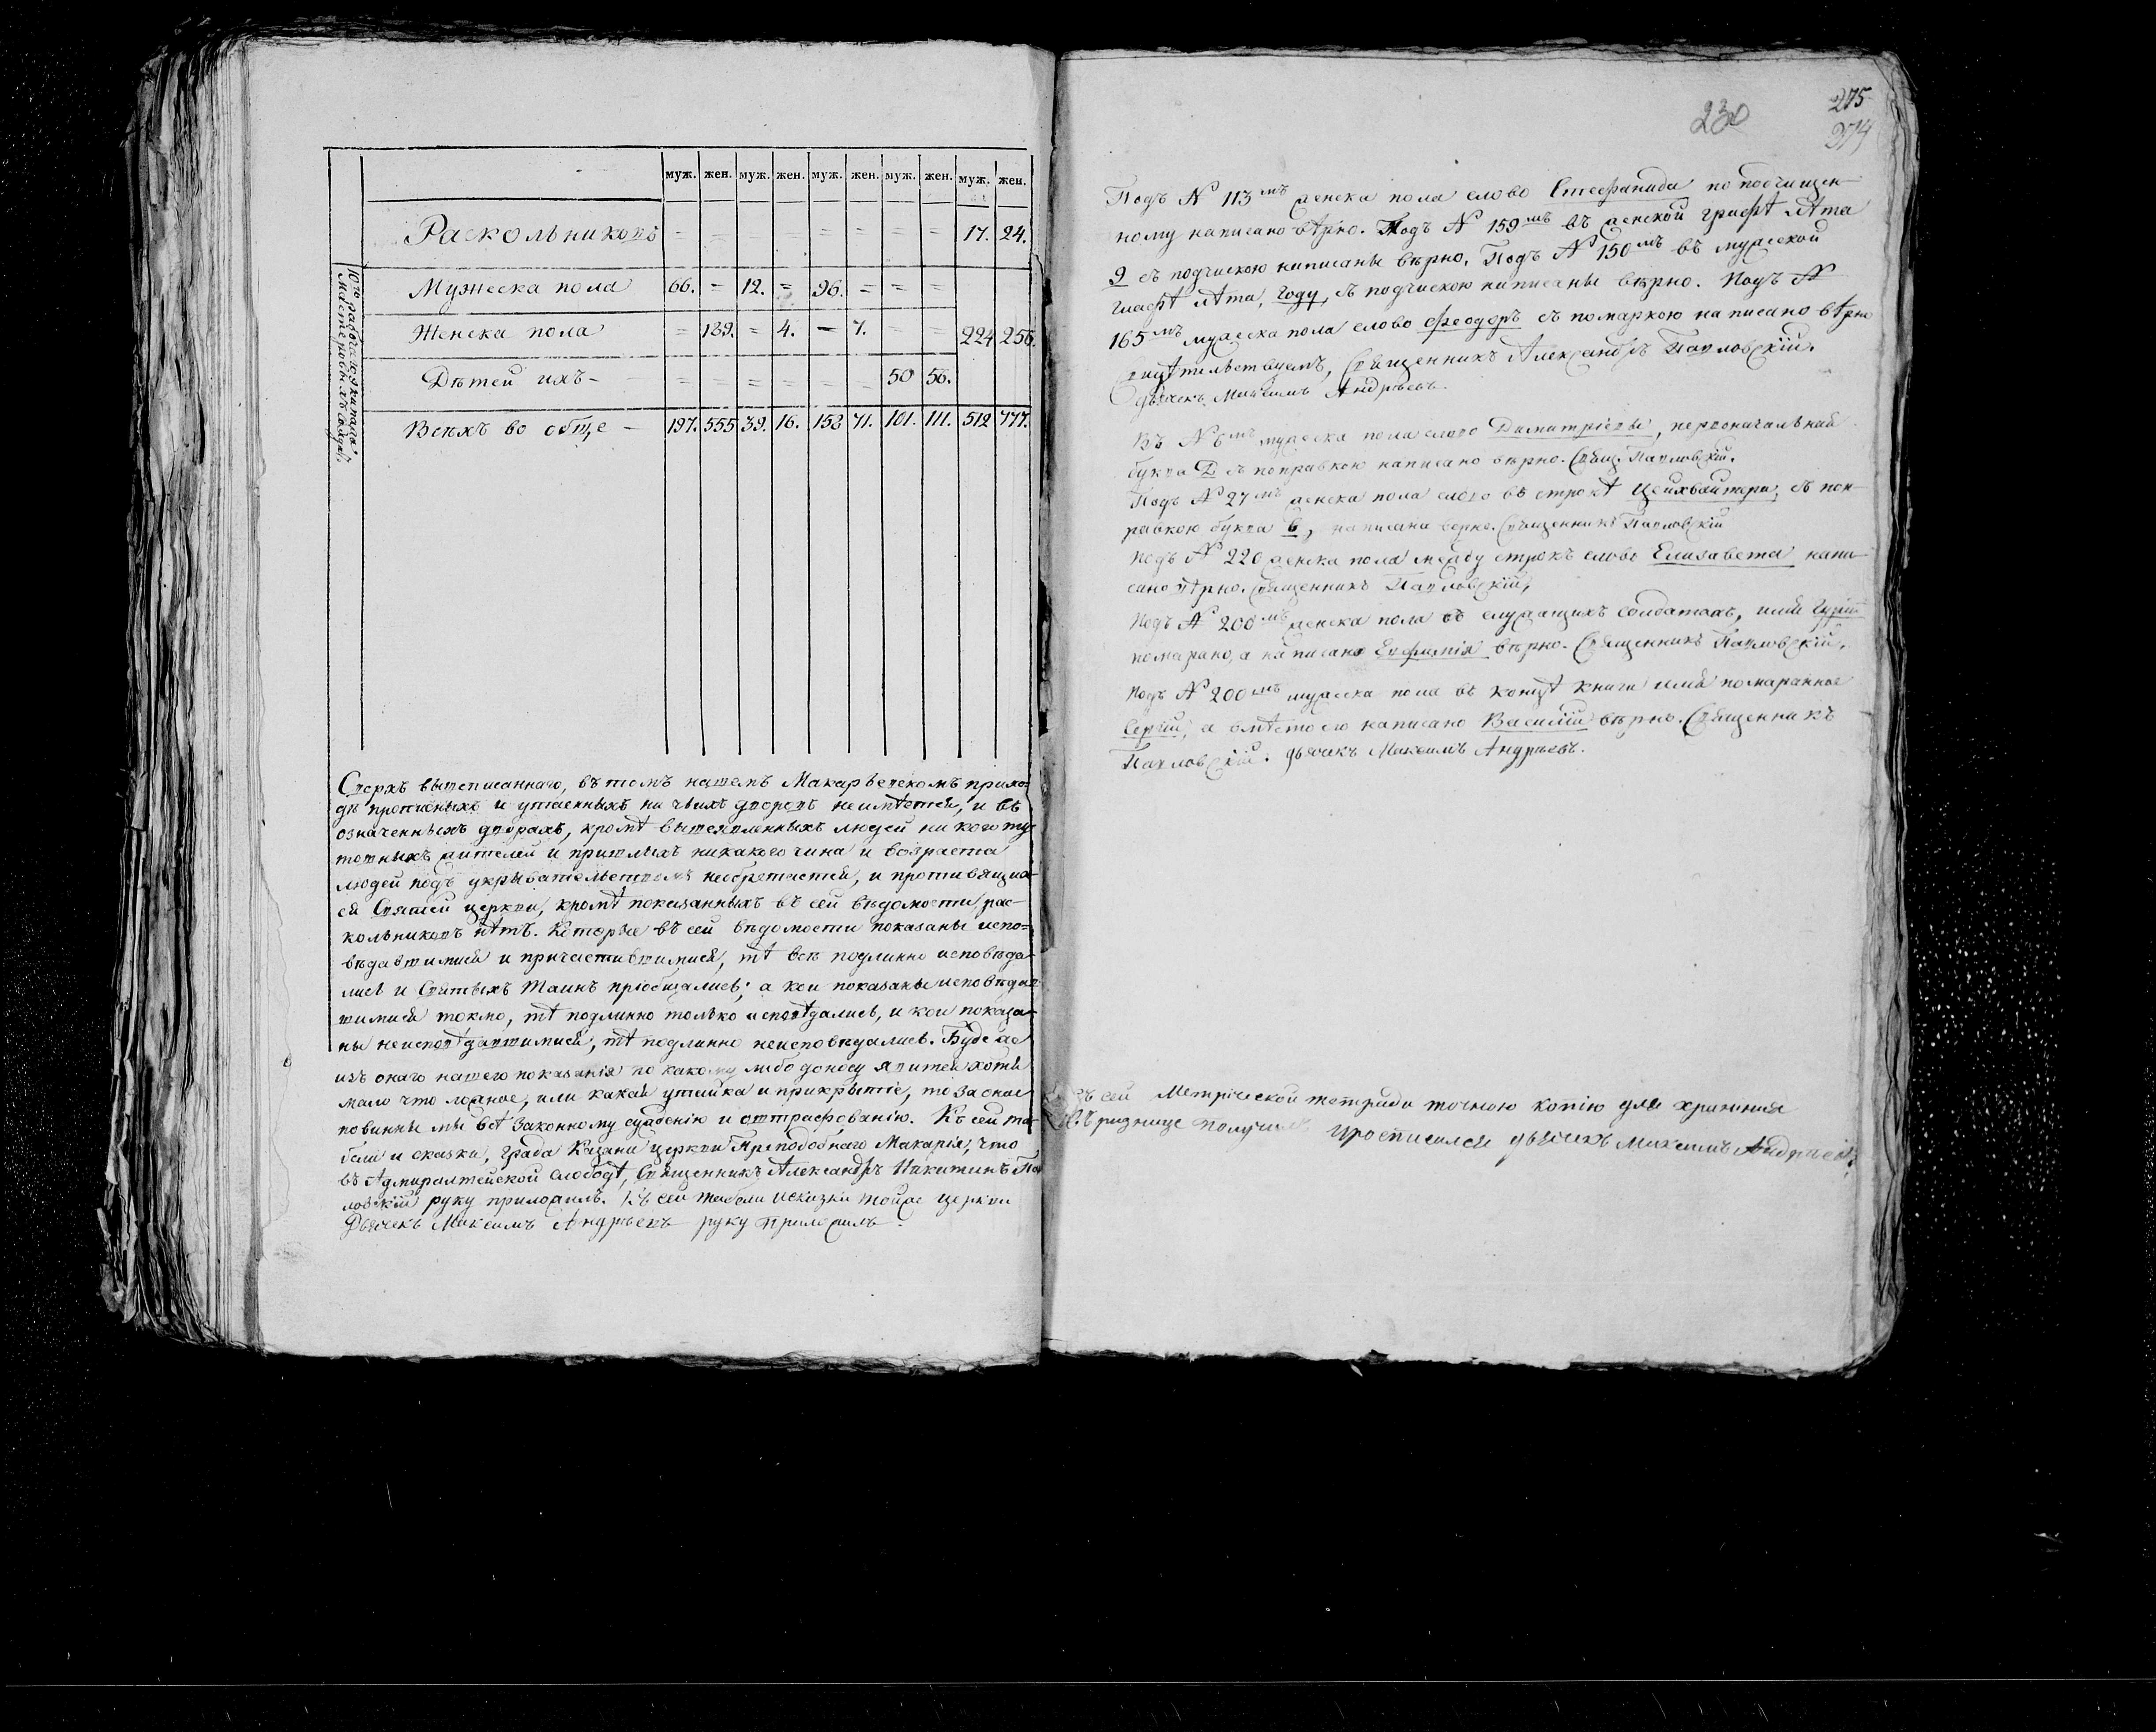 муж. жен. муж. жен. муж. жен. муж. жен. муж. жен.
Раскольниковъ = = = = = = = = 17. 24.
Мужеска пола 66. = 12. = 96. = = =
Женска пола = 139. = 4. = 7. = = 224 256.
Дѣтей ихъ = = = = = = 50 56.
Всѣхъ во обще 197. 555 39. 16. 153 71. 101. 111. 512 777.
Сверхъ вышеписаннаго, въ томъ нашемъ Макарьевскомъ прихо-
дѣ прописныхъ и утаенныхъ ни чьихъ дворовъ неимѣется, и въ
означенныхъ дворахъ, кромѣ вышеявленныхъ людей ни кого ту-
тошныхъ жителей и пришлыхъ никакого чина и возраста
людей подъ укрывательствомъ необрѣтается, и противящих-
ся Святѣй церкви, кромѣ показанныхъ въ сей вѣдомости рас-
кольниковъ нѣтъ. Которые въ сей вѣдомости показаны испо-
вѣдавшимися и причастившимися, тѣ всѣ подлинно исповѣда-
лись и Святыхъ Таинъ пріобщались; а кои показаны исповѣдав-
шимися токмо, тѣ подлинно только исповѣдались, и кои показа-
ны неисповѣдавшимися, тѣ подлинно неисповѣдались. Буде же
изъ онаго нашего показанія по какому либо доносу явится хотя
мало что ложное, или какая утайка и прикрытіе, то за оное
повинны мы всѣ законному сужденію и оштрафованію. Къ сей та-
бели и сказки, града Казани церкви Преподобнаго Макарія, что
въ Адмиралтейской слободѣ, Священникъ Александръ Никитинъ Пав-
ловскій руку приложилъ. Къ сей табели и сказки тойже церкви
Дьячекъ Максимъ Андрѣевъ руку приложилъ.
230
275
374
Подъ № 113мъ женска пола слово Стефанида по подчищен-
ному написано вѣрно. Подъ № 159мъ въ женской графѣ лѣта
9 съ подчискою написаны вѣрно. Подъ № 150мъ въ мужеской
графѣ лѣта, году, съ подчискою написаны вѣрно. Подъ №
165мъ мужеска пола слово Феодоръ съ помаркою написано вѣрно
свидѣтельствуемъ, Священникъ Александръ Павловскій.
Дьячекъ Максимъ Андрѣевъ.
Въ № 6мъ мужеска пола слово Димитріевы, первоначальная
буква Д съ поправкою написано вѣрно. Свящ. Павловскій.
Подъ № 27мъ женска пола слово въ строкѣ Цейхвахтера, съ поп-
равкою буква в, написана верно. Священникъ Павловскій
Подъ № 220 женска пола между строкъ слово Елизавета напи-
сано вѣрно. Священникъ Павловскій,
Подъ № 200мъ женска пола въ служащихъ солдатахъ, имя
помарано, а написано Евфимія вѣрно. Священникъ Павловскій.
Подъ № 200мъ мужеска пола въ концѣ книги имя помаранное
Сергій, а вмѣсто его написано Василій вѣрно. Священникъ
Павловскій. дьячекъ Максимъ Андрѣевъ.
Съ сей Метрической тетради точною копію для храненія
въ ризнице получилъ и росписался дьячекъ Максимъ Андрѣевъ